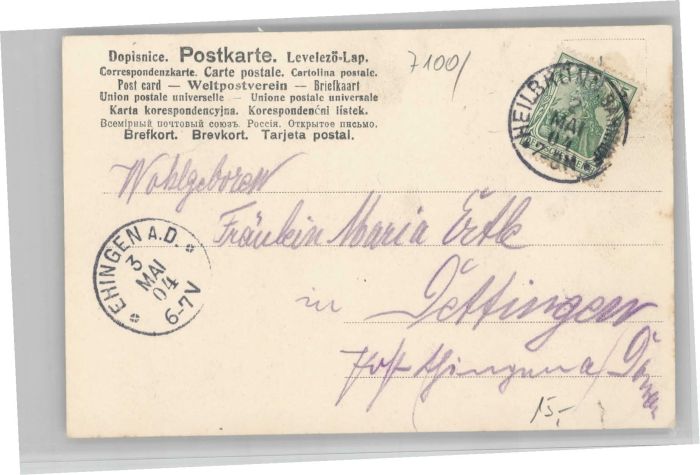 Dopisnice. Postkarte. Levelező-Lap.
Correspondenzkarte. Carte postale. Cartolina postale.
Post card — Weltpostverein — Briefkaart
Union postale universelle — Unione postale universale
Karta korespondencyjna. Korespondenční listek.
Всемірный почтовый союзъ. Россія. Открытое письмо.
Brefkort. Brevkort. Tarjeta postal.
7100/
HEILBRONN
2
MAI
04
Wohlgeboren
Fräulein Maria Ertle
in Dettingen
Post Ehingen a/Donau
EHINGEN A.D.
3
MAI
04
6-7V
15,-